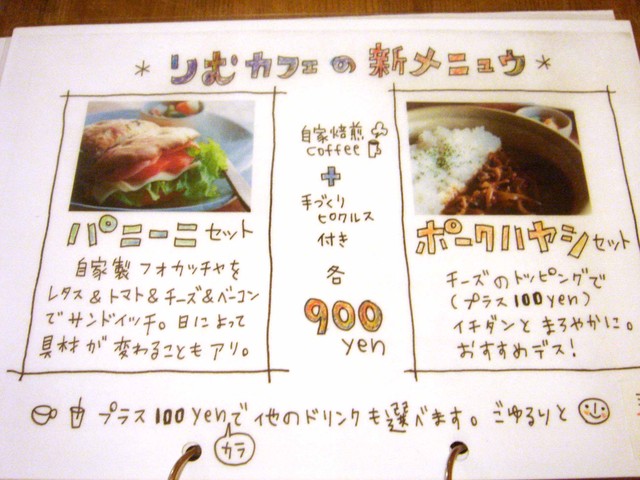 * りむカフェの新メニュウ *
パニーニセット
自家製フォカッチャを
レタス&トマト&チーズ&ベーコン
でサンドイッチ。日によって
具材が変わることもアリ。
自家焙煎
coffee
+
手づくり
ピクルス
付き
各
900
yen
ポークハヤシセット
チーズのトッピングで
(プラス100yen)
イチダンとまろやかに。
おすすめデス!
プラス100yenで他のドリンクも選べます。ごゆるりと
カラ